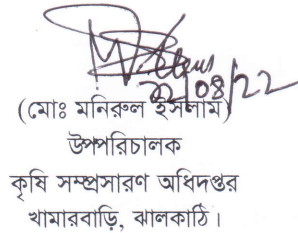 22/08/22
(মোঃ মনিরুল ইসলাম)
উপপরিচালক
কৃষি সম্প্রসারণ অধিদপ্তর
খামারবাড়ি, ঝালকাঠি।